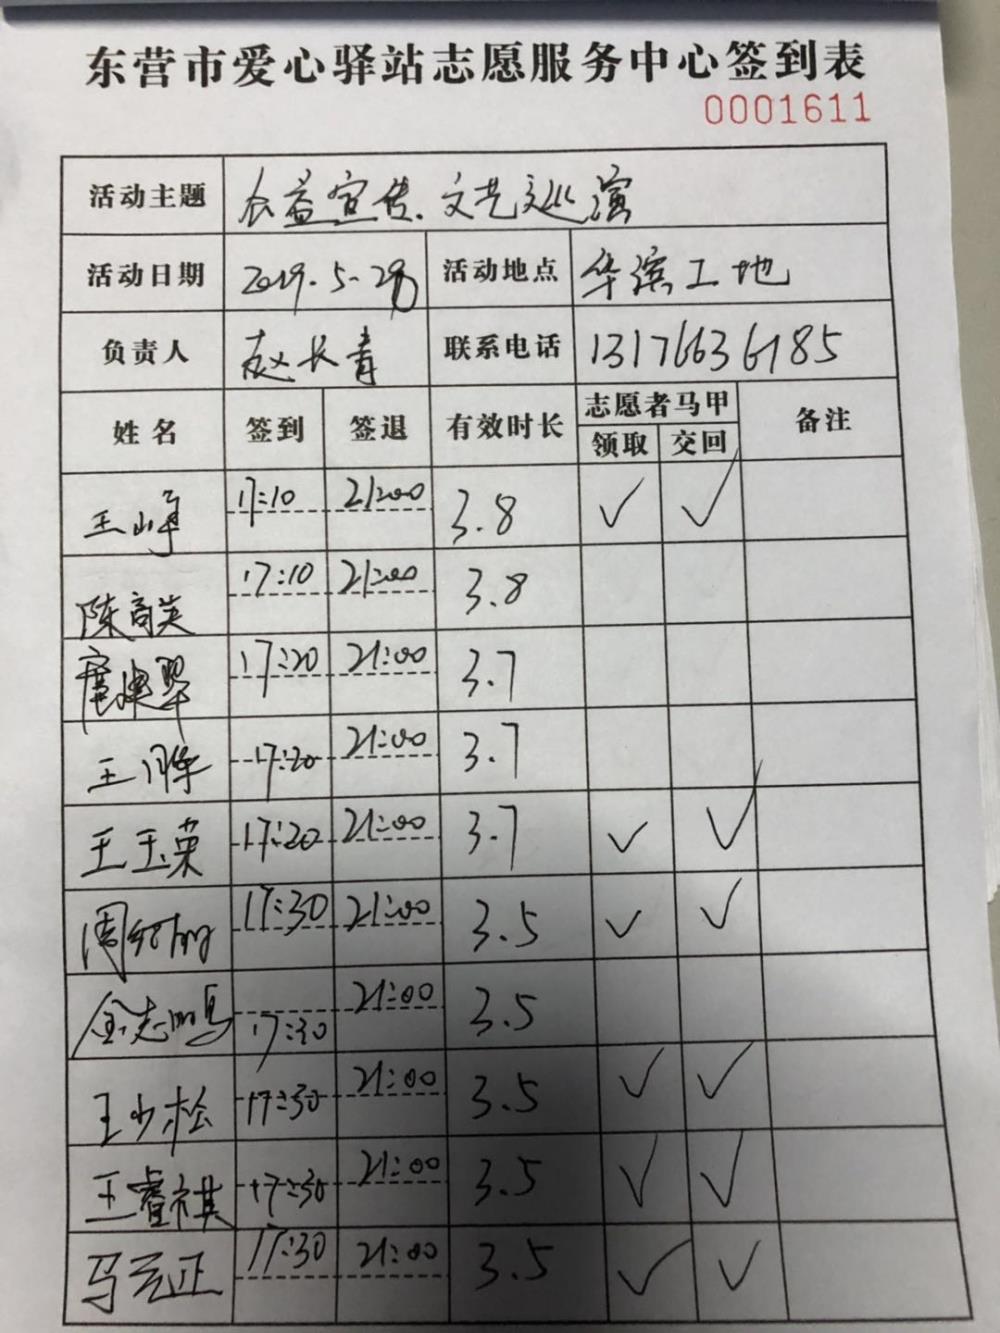 东营市爱心驿站志愿服务中心签到表
0001611
活动主题 公益宣传.文艺巡演
活动日期 2019.5.29 活动地点 华滨工地
负责人 赵长青 联系电话 13176636185
姓名 签到 签退 有效时长 志愿者马甲 备注
领取 交回
王峥 17:10 21:00 3.8 ✓ ✓
陈高英 17:10 21:00 3.8
17:20 21:00 3.7
王 17:20 21:00 3.7
王玉荣 17:20 21:00 3.7 ✓ ✓
周 17:30 21:00 3.5 ✓ ✓
金志鸣 17:30 21:00 3.5
王少松 17:30 21:00 3.5 ✓ ✓
王睿祺 17:30 21:00 3.5 ✓ ✓
马云正 17:30 21:00 3.5 ✓ ✓